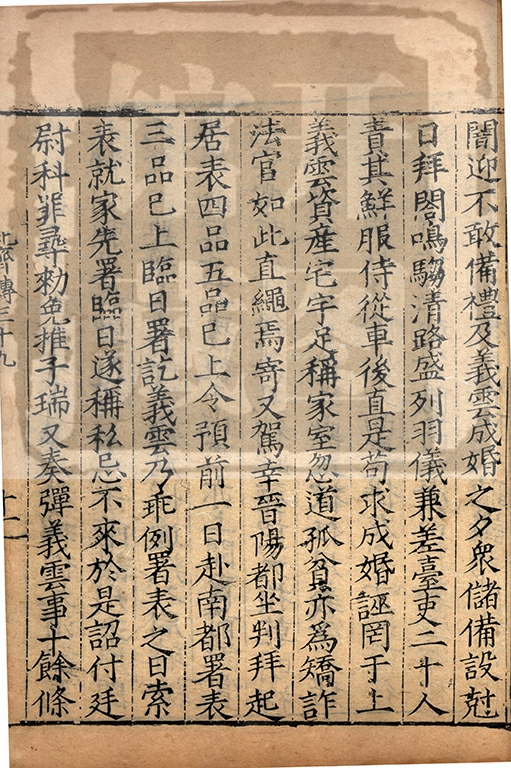 闇迎不敢備禮及義雲成婚之夕衆儲備設尅
日拜閤鳴騶清路盛列羽儀兼差臺吏二十人
責其鮮服侍從車後直是苟求成婚誣罔于上
義雲資産宅宇足稱家室忽道孤貧亦爲矯詐
法官如此直繩焉寄又駕幸晉陽都坐判拜起
居表四品五品巳上令預前一日赴南都署表
三品巳上臨日署訖義雲乃乖例署表之日索
表就家先署臨日遂稱私忌不來於是詔付廷
尉科罪尋勑免推子瑞又奏彈義雲事十餘條
北齊傳三十九
十一